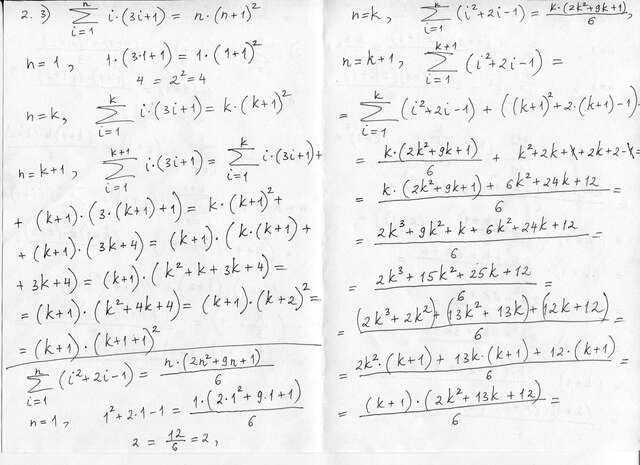 2. 3) \sum_{i=1}^{n} i·(3i+1) = n·(n+1)²
n=1, 1·(3·1+1) = 1·(1+1)²
4 = 2² = 4
n=k, \sum_{i=1}^{k} i·(3i+1) = k·(k+1)²
n=k+1, \sum_{i=1}^{k+1} i·(3i+1) = \sum_{i=1}^{k} i·(3i+1)+
+ (k+1)·(3·(k+1)+1) = k·(k+1)²+
+ (k+1)·(3k+4) = (k+1)·(k·(k+1)+
+ 3k+4) = (k+1)·(k²+k+3k+4) =
= (k+1)·(k²+4k+4) = (k+1)·(k+2)² =
= (k+1)·(k+1+1)²
\sum_{i=1}^{n} (i²+2i-1) = \frac{n·(2n²+9n+1)}{6}
n=1, 1²+2·1-1 = \frac{1·(2·1²+9·1+1)}{6}
2 = \frac{12}{6} = 2,
n=k, \sum_{i=1}^{k} (i²+2i-1) = \frac{k·(2k²+9k+1)}{6},
n=k+1, \sum_{i=1}^{k+1} (i²+2i-1) =
= \sum_{i=1}^{k} (i²+2i-1) + ((k+1)²+2·(k+1)-1)=
= \frac{k·(2k²+9k+1)}{6} + k²+2k+1+2k+2-1=
= \frac{k·(2k²+9k+1) + 6k²+24k+12}{6} =
= \frac{2k³+9k²+k+6k²+24k+12}{6} =
= \frac{2k³+15k²+25k+12}{6} =
= \frac{(2k³+2k²)+(13k²+13k)+(12k+12)}{6} =
= \frac{2k²·(k+1)+13k·(k+1)+12·(k+1)}{6} =
= \frac{(k+1)·(2k²+13k+12)}{6} =